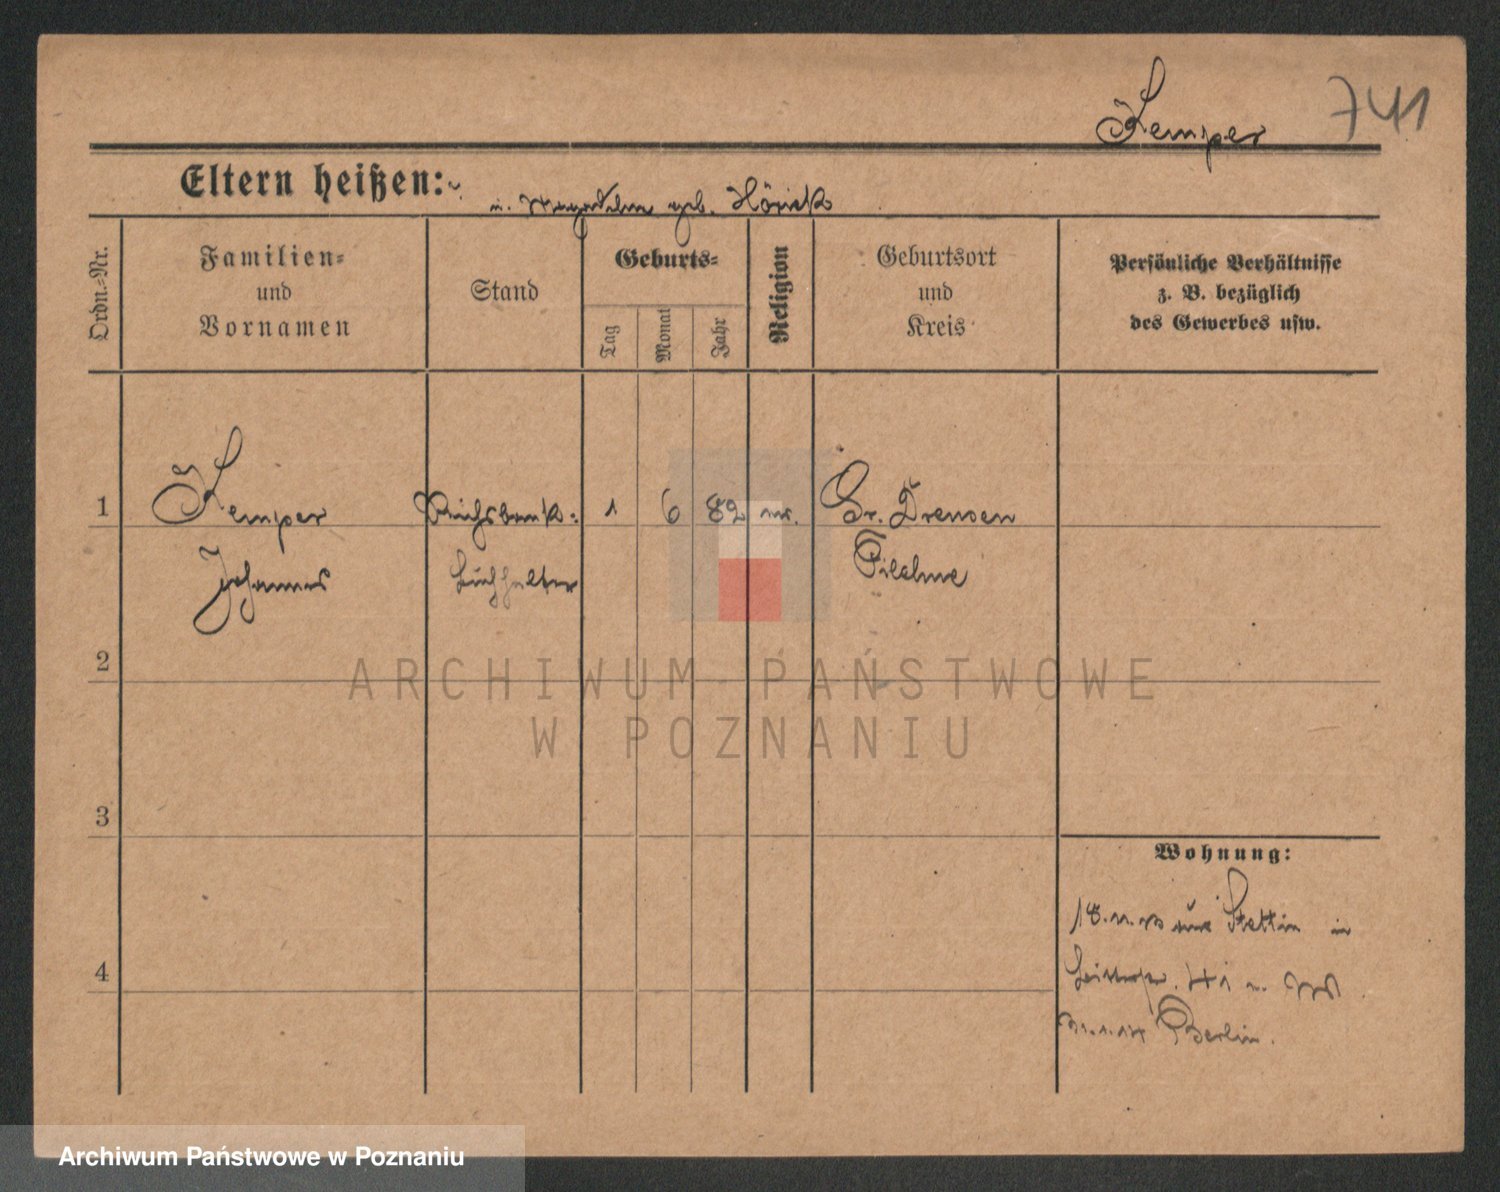 Kemper 741
Eltern heißen: u. Magdalena geb. Hörick
Ordn.-Nr.
Familien-
und
Vornamen
Stand
Geburts-
Tag
Monat
Jahr
Religion
Geburtsort
und
Kreis
Persönliche Verhältnisse
z. B. bezüglich
des Gewerbes usw.
1 Kemper Reichsbank- 1 6 82 Gr. Drensen
Johannes Buchhalter Filehne
2
ARCHIWUM PAŃSTWOWE
W POZNANIU
3
Wohnung:
18. aus Stettin in
4
Berlin.
Archiwum Państwowe w Poznaniu